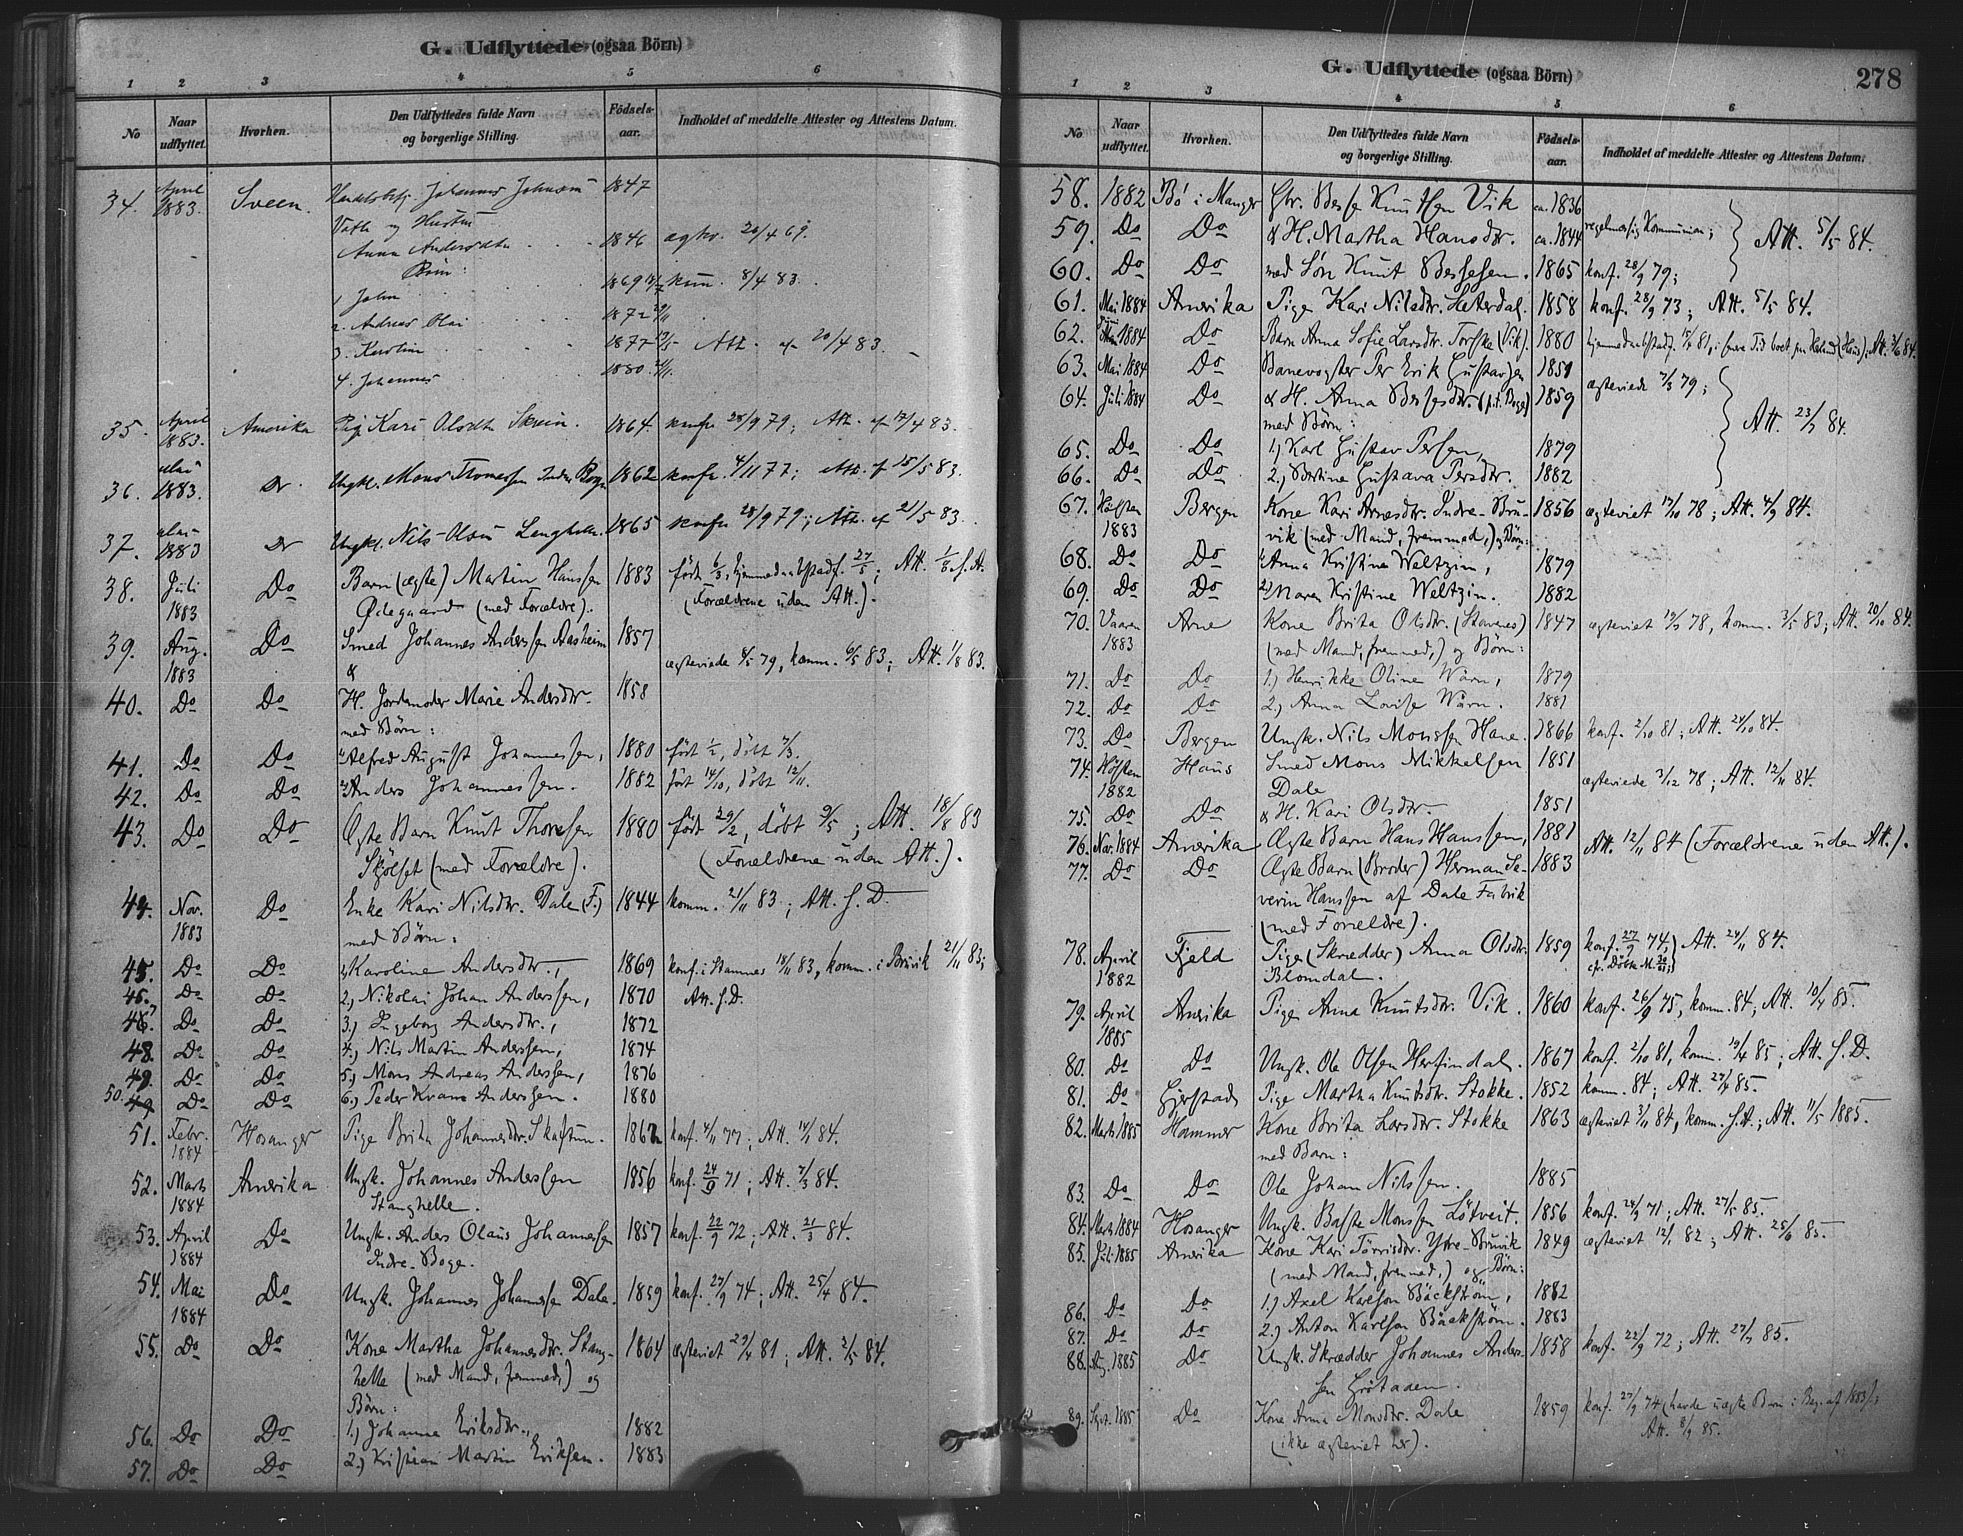 G. Udflyttede (ogsaa Börn)
1 2 3 4 5 6
No Naar udflyttet. Hvorhen. Den Udflyttedes fulde Navn og borgerlige Stilling. Födsels-aar. Indholdet af meddelte Attester og Attestens Datum.
34. April 1883. Sveen. Johannes Johnsen 1847
og Hustru
Anna Andersdtr 1846 20/4 69.
Börn:
1. John 1869 kom. 8/4 83.
2. Andreas Olai 1872
3. Karolina 1877 Att. af 20/4 83.
4. Johannes 1880.
35. April 1883. Amerika Pig. Kari Olsdtr 1864. konfr 28/9 79; Att. af 17/4 83.
36. Mai 1883. Do Ungkl. Mons Thomassen Indre Boge 1862 konfr. 4/11 77; Att. af 15/5 83.
37. Mai 1883 Do Ungkl. Nils Olsen 1865 konfr 28/9 79; Att. af 21/5 83.
38. Juli 1883 Do Barn (ægte) Martin Hanssen 1883 född 6/3, hjemmedøbt stadf. 27/5; Att. 1/8 s. A.
Ødegaard (med Forældre). (Forældrene uden Att.).
39. Aug. 1883 Do Smed Johannes Anderssen Aasheim 1857
& ægteviede 8/5 79, komm. 6/5 83; Att. 1/8 83.
40. Do Do H. Jordemoder Marie Andersdtr. 1858
med Börn:
41. Do Do 1) Alfred August Johannessen, 1880 född 1/2, döbt 7/3.
42. Do Do 2) Anders Johannessen. 1882 född 14/10, döbt 12/11.
43. Do Do Ægte Barn Knut Thoresen 1880 född 29/2, döbt 9/5; Att. 18/8 83
Skjölset (med Forældre). (Forældrene uden Att.).
44. Nov. 1883 Do Enke Kari Nilsdtr. Dale (F.) 1844 komm. 21/11 83; Att. s. D.
med Börn:
45. Do Do 1) Karoline Andersdtr., 1869 konf. i Stamnes 18/11 83, komm. i Bruvik 21/11 83;
46. Do Do 2.) Nikolai Johan Anderssen, 1870 Att. s. D.
47. Do Do 3.) Ingeborg Andersdtr., 1872
48. Do Do 4.) Nils Martin Anderssen, 1874
49. Do Do 5.) Mons Andreas Anderssen, 1876
50. Do Do 6.) Peder Kvam Anderssen. 1880
51. Febr. 1884 Hosanger Pige Brita Johannesdtr. Skaftun. 1862 konf. 4/11 77; Att. 14/2 84.
52. Marts 1884 Amerika Ungk. Johannes Anderssen 1856 konf. 24/9 71; Att. 7/3 84.
Stanghelle.
53. April 1884 Do Ungk. Anders Olaus Johannessen 1857 konf. 22/9 72; Att. 21/3 84.
Indre-Boge.
54. Mai 1884 Do Ungk. Johannes Johannessen Dale. 1859 konf. 27/9 74; Att. 25/4 84.
55. Do Do Kone Martha Johannesdtr. Stang- 1864 ægteviet 29/4 81; Att. 2/5 84.
helle (med Mand, fremmed,) og
Börn:
56. Do Do 1.) Johanna Eriksdtr., 1882
57. Do Do 2.) Kristian Martin Eriksen. 1883
G. Udflyttede (ogsaa Börn) 278
1 2 3 4 5 6
No Naar udflyttet. Hvorhen. Den Udflyttedes fulde Navn og borgerlige Stilling. Födsels-aar. Indholdet af meddelte Attester og Attestens Datum.
58. 1882 Bö i Manger Gbr. Besse Knutsen Vik ca. 1836
59. Do Do & H. Martha Hansdtr. ca. 1844 regelmæssig Kommunion; Att. 5/5 84.
60. Do Do med Sön Knut Bessesen. 1865 konf. 28/9 79;
61. Mai 1884 Amerika Pige Kari Nilsdtr. Sæterdal. 1858 konf. 28/9 73; Att. 5/5 84.
62. 1884 Do Barn Anna Sofie Larsdtr. Torske (Vik). 1880 hjemmedøbt stadf. 81, i Tid boet paa (Haus); Att. 3/6 84.
63. Mai 1884 Do Banevogter Per Erik Gustavsen 1851 ægteviede 7/3 79;
64. Juli 1884 Do & H. Anna Bessesdtr. (f. i. Boge) 1859
med Börn: Att. 23/5 84.
65. Do Do 1.) Karl Gustav Persen, 1879
66. Do Do 2.) Bertine Gustava Persdtr. 1882
67. Hösten 1883 Bergen Kone Kari Arnesdtr. Indre-Bru- 1856 ægteviet 17/10 78; Att. 4/9 84.
vik (med Mand, fremmed,) og Börn:
68. Do Do 1) Anna Kristine Weltzin, 1879
69. Do Do 2) Maren Kristine Weltzin. 1882
70. Vaaren 1883 Arne Kone Brita Olsdtr. (Stavenes) 1847 ægteviet 19/3 78, komm. 3/5 83; Att. 20/10 84.
(med Mand, fremmed,) og Börn:
71. Do Do 1.) Henrikke Oline Warn, 1879
72. Do Do 2.) Anna Lovise Warn. 1881
73. Do Bergen Ungk. Nils Monssen Hane. 1866 konf. 2/10 81; Att. 24/10 84.
74. Hösten 1882 Haus Smed Mons Mikkelsen 1851
Dale ægteviede 3/12 78; Att. 12/11 84.
75. Do Do & H. Kari Olsdtr. 1851
76. Nov. 1884 Amerika Ægte Barn Hans Hanssen, 1881 Att. 12/11 84 (Forældrene uden Att.).
77. Do Do Ægte Barn (Broder) Herman Se- 1883
verin Hanssen af Dale Fabrik
(med Forældre).
78. April 1882 Fjeld Pige (Skrædder) Anna Olsdtr. 1859 konf. 27/9 74; Att. 24/11 84.
Blomdal.
79. April 1885 Amerika Pige Anna Knutsdtr. Vik. 1860 konf. 26/9 75, komm. 84; Att. 10/4 85.
80. Do Do Ungk. Ole Olsen Herfindal. 1867 konf. 2/10 81, komm. 19/4 85; Att. s. D.
81. Do Gjerstad Pige Martha Knutsdtr. Stokke. 1852 komm. 84; Att. 27/4 85.
82. Marts 1885 Hammer Kone Brita Larsdtr. Stokke 1863 ægteviet 3/11 84, komm. s. A.; Att. 11/5 1885.
med Barn:
83. Do Do Ole Johan Nilssen. 1885
84. Marts 1884 Hosanger Ungk. Baste Monssen Lötveit. 1856 konf. 24/9 71; Att. 27/5 85.
85. Juli 1885 Amerika Kone Kari Törrisdtr. Ytre-Bruvik 1849 ægteviet 12/1 82; Att. 25/6 85.
(med Mand, fremmed,) og Börn:
86. Do Do 1.) Axel Karlson Bäckström, 1882
87. Do Do 2.) Anton Karlson Bäckström. 1883
88. Aug. 1885 Do Ungk. Skrædder Johannes Anders- 1858 konf. 22/9 72; Att. 27/7 85.
sen Grötaden.
89. Sept. 1885 Do Kone Anna Monsdtr. Dale 1859 konf. 27/9 74 (havde uægte Barn i Beg. af 1883);
(ikke ægteviet her). Att. 8/9 85.